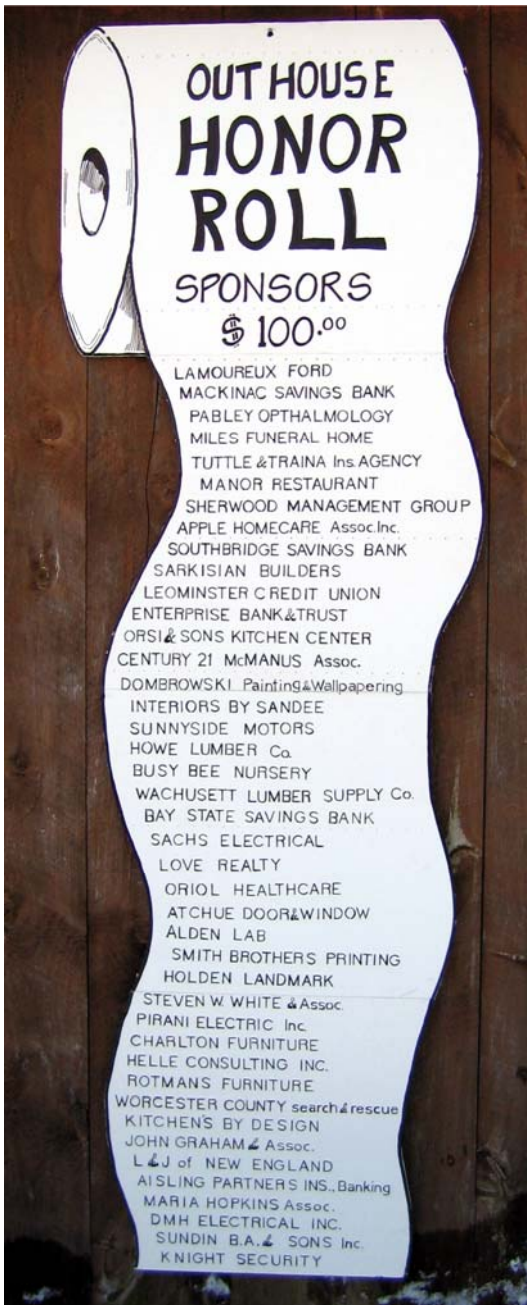 OUTHOUSE
HONOR
ROLL
SPONSORS
$ 100.00
LAMOUREUX FORD
MACKINAC SAVINGS BANK
PABLEY OPTHALMOLOGY
MILES FUNERAL HOME
TUTTLE & TRAINA Ins. AGENCY
MANOR RESTAURANT
SHERWOOD MANAGEMENT GROUP
APPLE HOMECARE Assoc. Inc.
SOUTHBRIDGE SAVINGS BANK
SARKISIAN BUILDERS
LEOMINSTER CREDIT UNION
ENTERPRISE BANK & TRUST
ORSI & SONS KITCHEN CENTER
CENTURY 21 McMANUS Assoc.
DOMBROWSKI Painting & Wallpapering
INTERIORS BY SANDEE
SUNNYSIDE MOTORS
HOWE LUMBER Co.
BUSY BEE NURSERY
WACHUSETT LUMBER SUPPLY Co.
BAY STATE SAVINGS BANK
SACHS ELECTRICAL
LOVE REALTY
ORIOL HEALTHCARE
ATCHUE DOOR & WINDOW
ALDEN LAB
SMITH BROTHERS PRINTING
HOLDEN LANDMARK
STEVEN W. WHITE & Assoc.
PIRANI ELECTRIC Inc.
CHARLTON FURNITURE
HELLE CONSULTING INC.
ROTMANS FURNITURE
WORCESTER COUNTY search & rescue
KITCHEN'S BY DESIGN
JOHN GRAHAM & Assoc.
L & J of NEW ENGLAND
AISLING PARTNERS INS., Banking
MARIA HOPKINS Assoc.
DMH ELECTRICAL INC.
SUNDIN B.A. & SONS Inc.
KNIGHT SECURITY